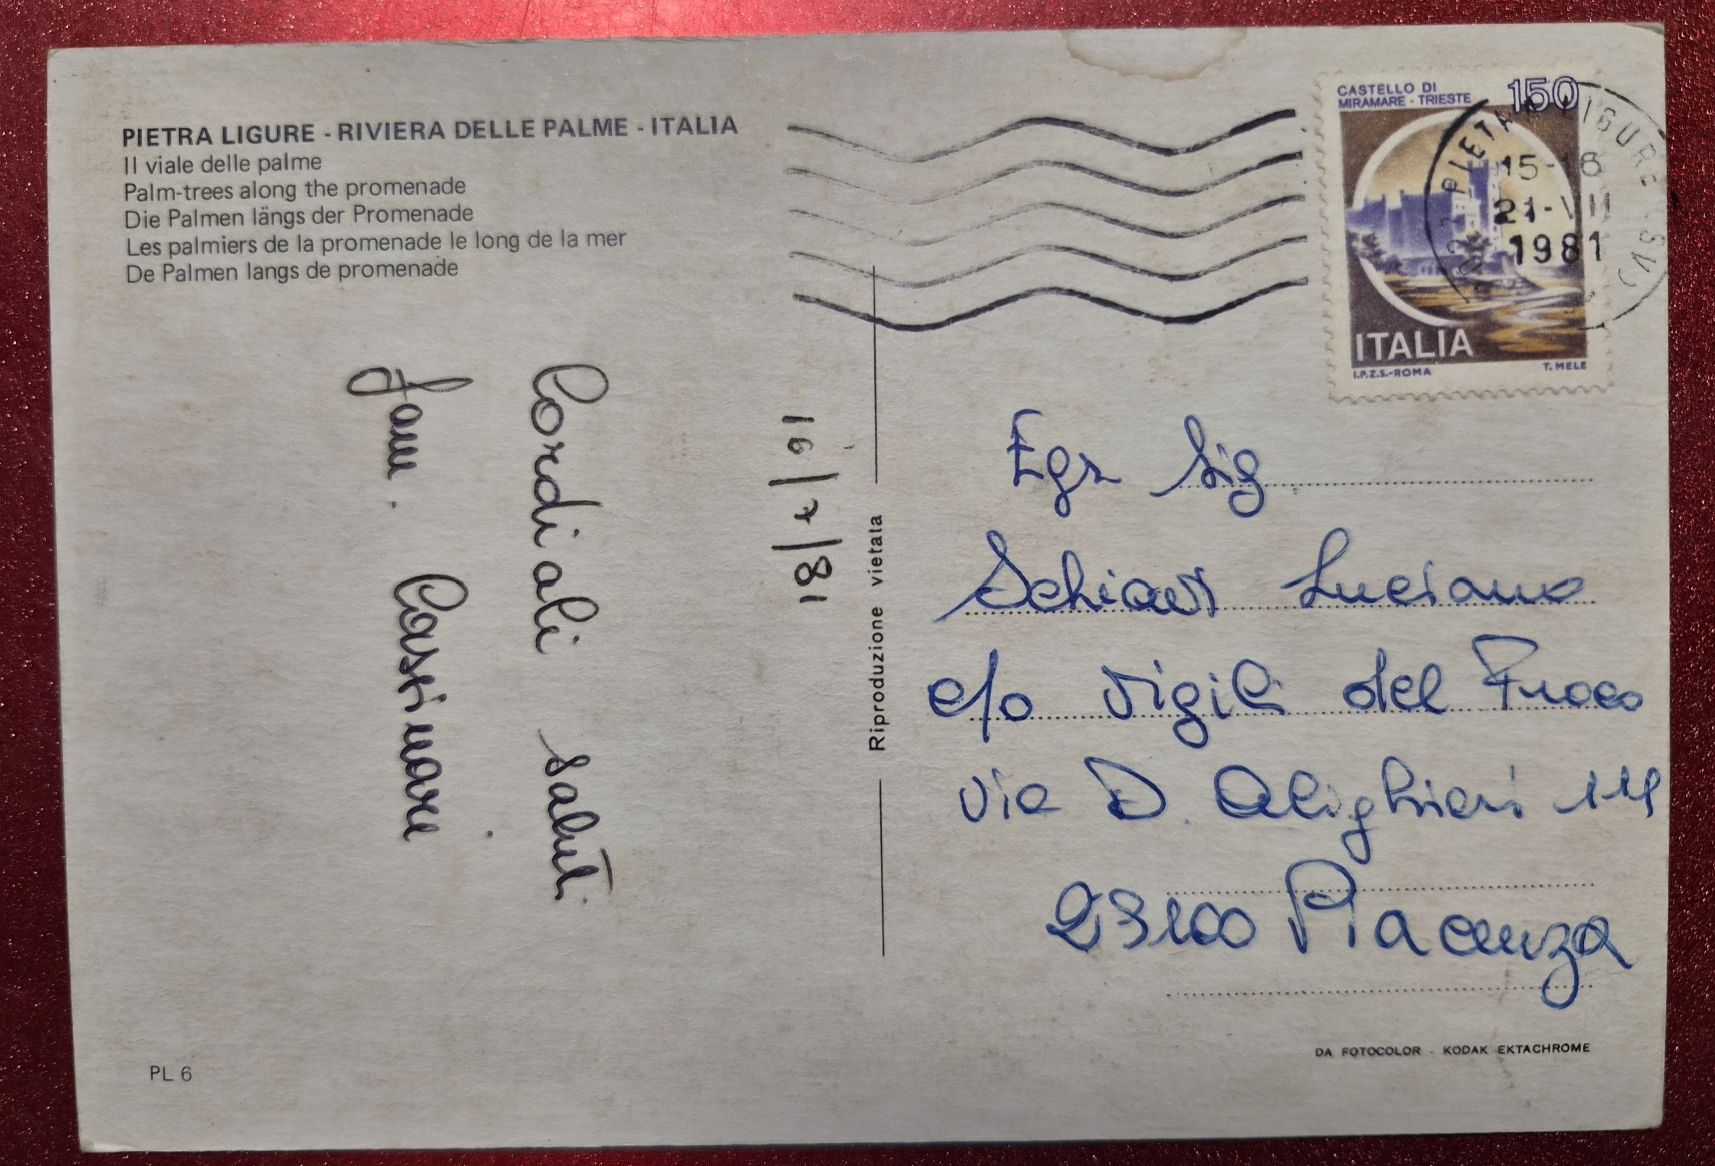 PIETRA LIGURE - RIVIERA DELLE PALME - ITALIA
Il viale delle palme
Palm-trees along the promenade
Die Palmen längs der Promenade
Les palmiers de la promenade le long de la mer
De Palmen langs de promenade
Cordiali saluti
Fam. Cassinare
16/7/81
Riproduzione vietata
CASTELLO DI
MIRAMARE - TRIESTE
150
ITALIA
I.P.Z.S.-ROMA T. MELE
PIETRA LIGURE (SV)
15-16
21-VII
1981
Egr Sig.
Schiavi Luciano
c/o Vigili del Fuoco
via D. Alighieri 111
23100 Piacenza
DA FOTOCOLOR - KODAK EKTACHROME
PL 6